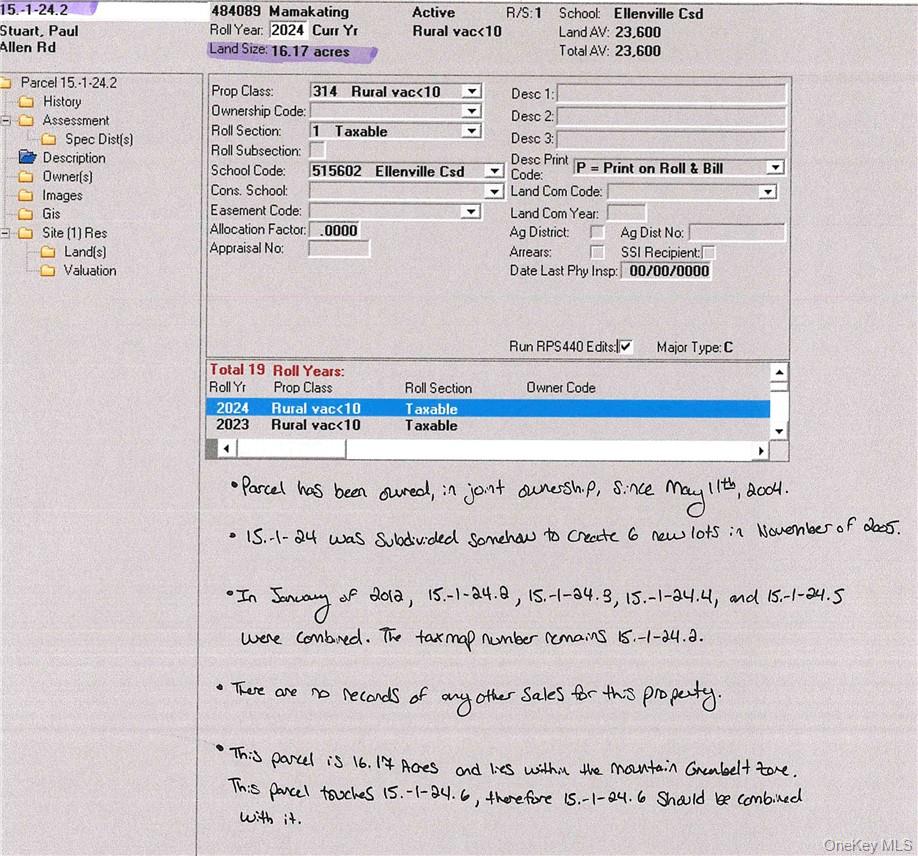 15.-1-24.2
Stuart, Paul
Allen Rd
484089 Mamakating
Roll Year: 2024 Curr Yr
Land Size: 16.17 acres
Active
Rural vac<10
R/S:1 School: Ellenville Csd
Land AV: 23,600
Total AV: 23,600
Parcel 15.-1-24.2
History
Assessment
Spec Dist(s)
Description
Owner(s)
Images
Gis
Site (1) Res
Land(s)
Valuation
Prop Class: 314 Rural vac<10
Ownership Code:
Roll Section: 1 Taxable
Roll Subsection:
School Code: 515602 Ellenville Csd
Cons. School:
Easement Code:
Allocation Factor: .0000
Appraisal No:
Desc 1:
Desc 2:
Desc 3:
Desc Print Code: P = Print on Roll & Bill
Land Com Code:
Land Com Year:
Ag District: Ag Dist No:
Arrears: SSI Recipient:
Date Last Phy Insp: 00/00/0000
Run RPS440 Edits: Major Type: C
Total 19 Roll Years:
Roll Yr Prop Class Roll Section Owner Code
2024 Rural vac<10 Taxable
2023 Rural vac<10 Taxable
• Parcel has been owned, in joint ownership, since May 11th, 2004.
• 15.-1-24 was subdivided somehow to create 6 new lots in November of 2005.
• In January of 2012, 15.-1-24.2, 15.-1-24.3, 15.-1-24.4, and 15.-1-24.5
were combined. The taxmap number remains 15.-1-24.2.
• There are no records of any other sales for this property.
• This parcel is 16.17 Acres and lies within the Mountain Greenbelt Zone.
This parcel touches 15.-1-24.6, therefore 15.-1-24.6 should be combined
with it.
OneKey MLS